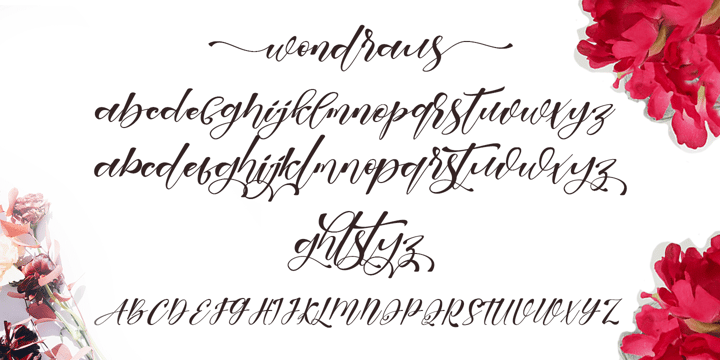 wondraus
abcdefghijklmnopqrstuvwxyz
abcdefghijklmnopqrstuvwxyz
ghtstyz
ABCDEFGHIJKLMNOPQRSTUVWXYZ